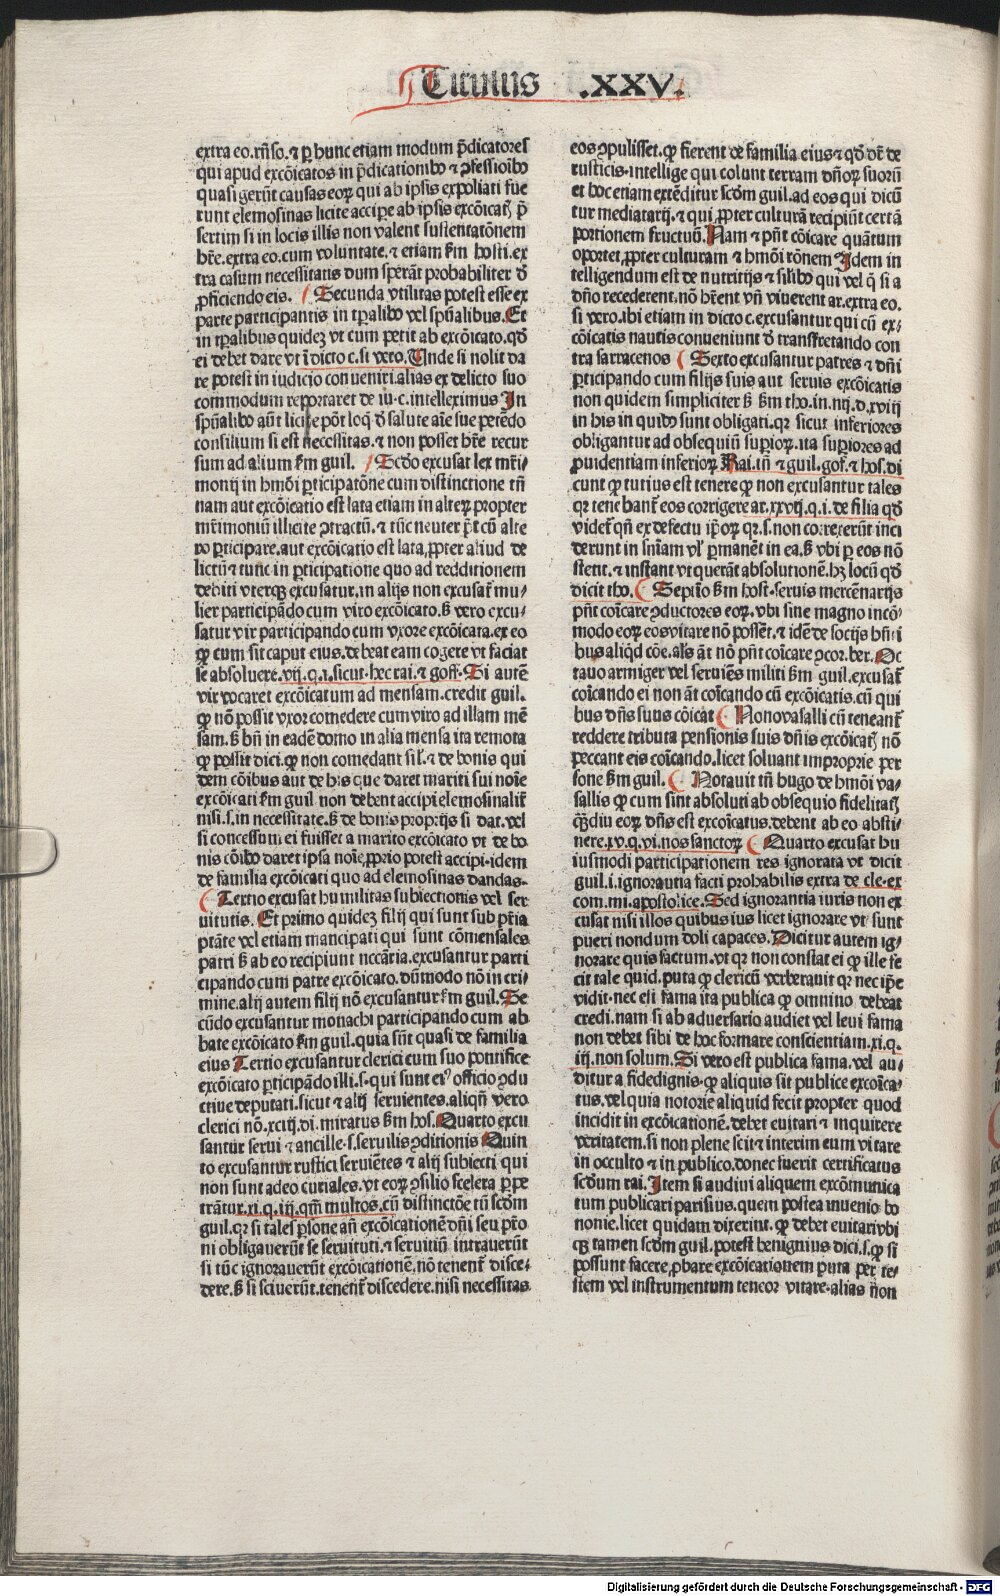 Titulus .XXV.
extra eo. rñso. ⁊ ꝑ hunc etiam modum p̃dicatores
qui apud excõicatos in p̃dicationibꝰ ⁊ ꝯfessioĩbꝰ
quasi gerũt causas eoꝝ qui ab ipsis expoliati fue
runt elemosinas licite accipe ab ipsis excõicatꝭ p̃
sertim si in locis illis non valent sustentatõnem
hr̃e. extra eo. cum voluntate. ⁊ etiam ẜm hosti. ex
tra casum necessitatis dum sperãt probabiliter ð
ꝓficiendo eis. Secunda vtilitas potest esse ex
parte participantis in tꝑalibꝰ vel spũalibus. Et
in tꝑalibus quidez vt cum petit ab excõicato. qð
ei debet dare vt ĩ dicto c. si vero. Unde si nolit da
re potest in iudicio conueniri. alias ex delicto suo
commodum reportaret de iu. c. intelleximus In
spũalibꝰ aũt licite põt loq̃ ð salute aĩe sue petẽdo
consilium si est necessitas. ⁊ non posset hr̃e recur
sum ad alium ẜm guil. Scðo excusat lex mr̃i-
monij in hmõi ꝑticipatõne cum distinctione tñ
nam aut excõicatio est lata etiam in alteꝝ propter
mr̃imoniũ illicite ꝯtractũ. ⁊ tũc neuter p̃t cũ alte
ro ꝑticipare. aut excõicatio est lata ꝓpter aliud de
lictũ ⁊ tunc in ꝑticipatione quo ad redditionem
debiti vterqꝫ excusatur. in alijs non excusat̃ mu-
lier participãdo cum viro excõicato. ẜꝫ vero excu-
satur vir participando cum vxore excõicata. ex eo
ꝙ cum sit caput eius. debeat eam cogere vt faciat
se absoluere. vij. q. i. sicut. hec rai. ⁊ goff. Si autẽ
vir vocaret excõicatum ad mensam. credit guil.
ꝙ nõ possit vxor comedere cum viro ad illam mẽ
sam. ẜꝫ bñ in eadẽ domo in alia mensa ita remota
ꝙ possit dici. ꝙ non comedant sil̃. ⁊ de bonis qui
dem cõibus aut de his que daret mariti sui noĩe
excõicati ẜm guil non debent accipi elemosinalit̃
nisi. s. in necessitate. ẜꝫ de bonis proprijs si dat. vel
si concessum ei fuisset a marito excõicato vt de bo
nis cõibꝰ daret ipsa noĩe ꝓprio potest accipi. idem
de familia excõicati quo ad elemosinas dandas.
Tertio excusat humilitas subiectionis vel ser
uitutis. Et primo quidez filij qui sunt sub pr̃ia
ptãte vel etiam mancipati qui sunt cõmensales
patri ẜꝫ ab eo recipiunt nccãria. excusantur parti
cipando cum patre excõicato. dũmodo nõ in cri-
mine. alij autem filij nõ excusantur ẜm guil. Se
cũdo excusantur monachi participando cum ab
bate excõicato ẜm guil. quia sũt quasi de familia
eius Tertio excusantur clerici cum suo pontifice
excõicato ꝑticipãdo illi. s. qui sunt eiꝰ officio ꝯdu
ctiue deputati. sicut ⁊ alij seruientes. aliqñ vero
clerici nõ. xciij. di. miratus ẜm hos. Quarto excu
santur serui ⁊ ancille. s. seruilis ꝯditionis Quin
to excusantur rustici seruiẽtes ⁊ alij subiecti qui
non sunt adeo curiales. vt eoꝝ ꝯsilio scelera ꝑpe
trãtur. xi. q. iij. qm̃ multos. cũ distinctõe tñ scðm
guil. qꝛ si tales ꝑsone añ excõicationẽ dñi seu pr̃o
ni obligauerũt se seruituti. ⁊ seruitiũ intrauerũt
si tũc ignorauerũt excõicationẽ. nõ tenent̃ disce-
dere. ẜꝫ si sciuerũt. tenent̃ discedere. nisi necessitas
eos ꝯpulisset. ꝙ fierent de familia eius ⁊ qð dr̃ de
rusticis. intellige qui colunt terram dñoꝝ suorũ
et hoc etiam extẽditur scðm guil. ad eos qui dicũ
tur mediatarij. ⁊ qui ꝓpter culturã recipiũt certã
portionem fructuũ. Nam ⁊ pñt cõicare quãtum
oportet ꝓpter culturam ⁊ hmõi rõnem Idem in
telligendum est de nutritijs ⁊ silibꝰ qui vel q̃ si a
dño recederent. nõ hr̃ent vñ viuerent ar. extra eo.
si vero. ibi etiam in dicto c. excusantur qui cũ ex-
cõicatis nautis conueniunt ð transfretando con
tra sarracenos Sexto excusantur patres ⁊ dñi
ꝑticipando cum filijs suis aut seruis excõicatis
non quidem simpliciter ẜꝫ ẜm tho. in. iiij. d. xviij
in his in quibꝰ sunt obligati. qꝛ sicut inferiores
obligantur ad obsequiũ suꝑioꝝ. ita suꝑiores ad
ꝓuidentiam inferioꝝ Rai. tñ ⁊ guil. gof. ⁊ hos. di
cunt ꝙ tutius est tenere ꝙ non excusantur tales
qꝛ tenebant̃ eos corrigere ar. xxvij. q. i. de filia qð
videt̃ qñ ex defectu ip̃oꝝ qꝛ. s. non correxerũt inci
derunt in sñiam vl̃ ꝑmanẽt in ea. ẜꝫ vbi ꝑ eos nõ
stent. ⁊ instant vt querãt absolutionẽ. hꝫ locũ qð
dicit tho. Septio ẜm host. seruis mercẽnarijs
pñt coĩcare ꝯductores eoꝝ. vbi sine magno incõ-
modo eoꝝ eos vitare nõ possẽt. ⁊ idẽ de socijs hñti
bus aliqð cõe. al̃s aũt nõ pñt coĩcare ꝯcor. ber. Oc
tauo armiger vel seruiẽs militi ẜm guil. excusat̃
coĩcando ei non aũt coĩcando cũ excõicatis. cũ qui
bus dñs suus cõicat Nono vasalli cũ teneant̃
reddere tributa pensionis suis dñis excõicatꝭ nõ
peccant eis coĩcando. licet soluant in proprie per
sone ẜm guil. Notauit tñ hugo de hmõi va-
sallis ꝙ cum sint absoluti ab obsequio fidelitatꝭ
qͣ̃diu eoꝝ dñs est excoĩcatus. debent ab eo absti-
nere. xv. q. vi. nos sanctoꝝ Quarto excusat hu
iusmodi participationem res ignorata vt dicit
guil. i. ignorantia facti probabilis extra de cle. ex
com. mi. apostolice. Sed ignorantia iuris non ex
cusat nisi illos quibus ius licet ignorare vt sunt
pueri nondum doli capaces. Dicitur autem ig-
norare quis factum. vt qꝛ non constat ei ꝙ ille fe
cit tale quid. puta ꝙ clericũ verberauit qꝛ nec ip̃e
vidit. nec est fama ita publica ꝙ omnino debeat
credi. nam si ab aduersario audiet vel leui fama
non debet sibi de hoc formare conscientiam. xi. q.
iij. non solum. Si vero est publica fama. vel au-
ditur a fidedignis. ꝙ aliquis sit publice excoĩca-
tus. vel quia notorie aliquid fecit propter quod
incidit in excõicationẽ. debet euitari ⁊ inquirere
veritatem. si non plene scit ⁊ interim eum vitare
in occulto ⁊ in publico. donec fuerit certificatus
scðum rai. Item si audiui aliquem excõmunica
tum publicari parisius. quem postea inuenio bo
nonie. licet quidam dixerint. ꝙ debet euitari vbi
qꝫ tamen scðm guil. potest benignius dici. s. ꝙ si
possunt facere ꝓbare excõicationem puta per te-
stem vel instrumentum teneor vitare. alias ñon
Digitalisierung gefördert durch die Deutsche Forschungsgemeinschaft - DFG